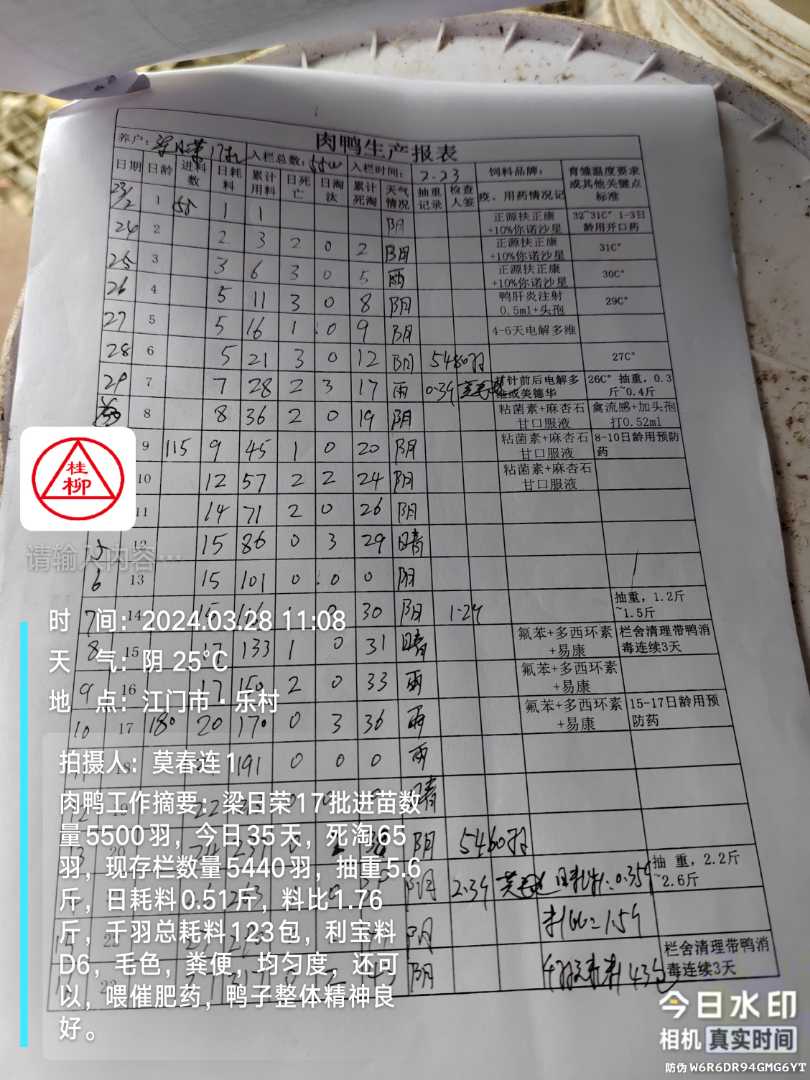 肉鸭生产报表
养户: 梁日荣17批 入栏总数: 55w 入栏时间: 2.23 饲料品牌: 育雏温度要求或其他关键点标准
日期 日龄 进料数 日耗料 累计用料 日死亡 日淘汰 累计死淘 天气情况 抽重记录 检查人签 疫、用药情况记
23/2 1 55 1 1 阴 正源扶正康+10%你诺沙星 32~31C° 1-3日龄用开口药
24 2 2 3 2 0 2 阴 正源扶正康+10%你诺沙星 31C°
25 3 3 6 3 0 5 雨 正源扶正康+10%你诺沙星 30C°
26 4 5 11 3 0 8 阴 鸭肝炎注射0.5ml+头孢 29C°
27 5 5 16 1 0 9 阴 4-6天电解多维
28 6 5 21 3 0 12 阴 5480羽 27C°
29 7 7 28 2 3 17 雨 0.39 针前后电解多维或美德华 26C° 抽重,0.3斤~0.4斤
8 8 36 2 0 19 阴 粘菌素+麻杏石甘口服液 禽流感+加头孢打0.52ml
9 115 9 45 1 0 20 阴 粘菌素+麻杏石甘口服液 8-10日龄用预防药
10 12 57 2 2 24 阴 粘菌素+麻杏石甘口服液
11 14 71 2 0 26 阴
5 12 15 86 0 3 29 晴
6 13 15 101 0 0 0 阴
7 14 15 0 30 阴 1.29 抽重,1.2斤~1.5斤
8 15 17 133 1 0 31 晴 氟苯+多西环素+易康 栏舍清理带鸭消毒连续3天
9 16 17 150 2 0 33 雨 氟苯+多西环素+易康
10 17 180 20 170 0 3 36 雨 氟苯+多西环素+易康 15-17日龄用预防药
191 0 0 0 雨
晴
阴 5460羽
阴 2.39 抽重,2.2斤~2.6斤
阴
阴 栏舍清理带鸭消毒连续3天
桂柳
请输入内容…
时 间: 2024.03.28 11:08
天 气: 阴 25℃
地 点: 江门市·乐村
拍摄人: 莫春连1
肉鸭工作摘要: 梁日荣17批进苗数
量5500羽,今日35天,死淘65
羽,现存栏数量5440羽,抽重5.6
斤,日耗料0.51斤,料比1.76
斤,千羽总耗料123包,利宝料
D6,毛色,粪便,均匀度,还可
以,喂催肥药,鸭子整体精神良
好。
今日水印
相机 真实时间
防伪 W6R6DR94GMG6YT